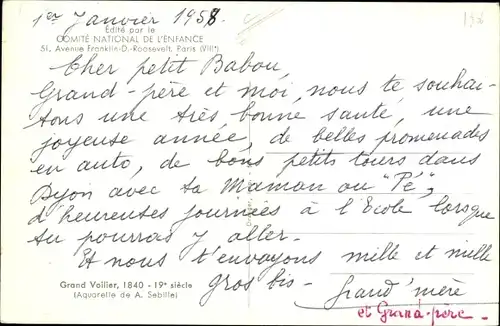 1er Janvier 1958.
Édité par le
COMITÉ NATIONAL DE L'ENFANCE
51, Avenue Franklin-D.-Roosevelt, Paris (VIIIe)
Cher petit Babou,
Grand-père et moi, nous te souhai-
tons une très bonne santé, une
joyeuse année, de belles promenades
en auto, de bons petits tours dans
Dijon avec ta Maman ou "Pé",
d'heureuses journées à l'Ecole lorsque
tu pourras y aller.
Et nous t'envoyons mille et mille
gros bis -
Grand'mère
et Grand-père -
Grand Voilier, 1840 - 19e siècle
(Aquarelle de A. Sebille)